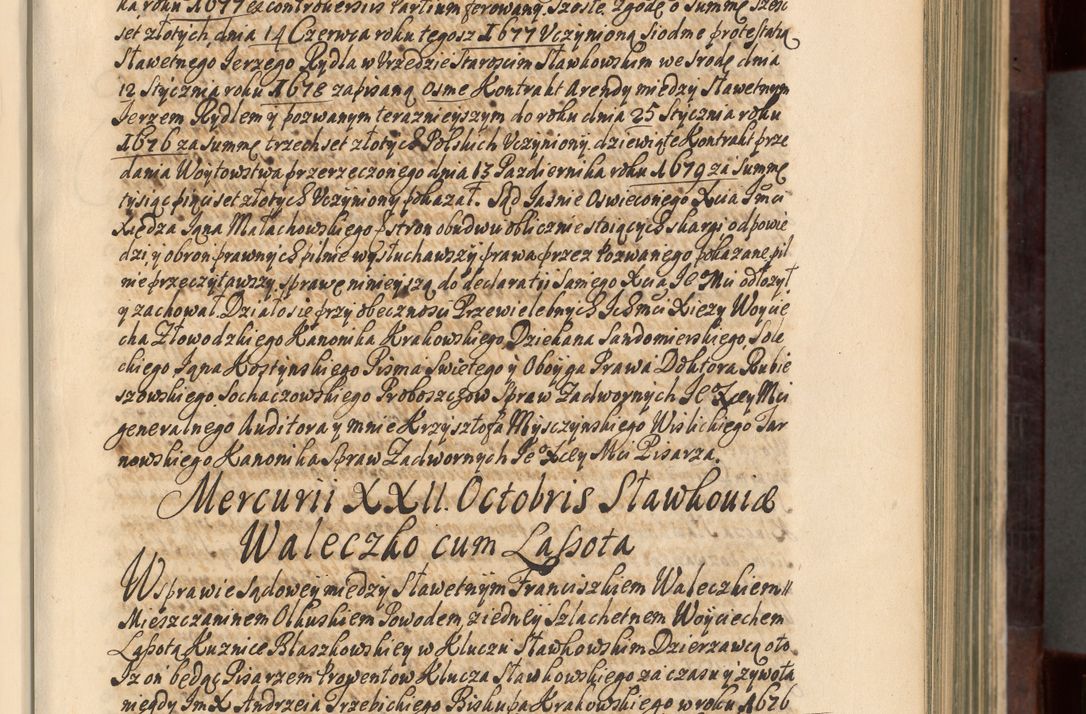 ka roku 1677 ex controversiis Partium ferowany, szoste zgodę o summę sześć
set złotych dnia 14 Czerwca roku tegosz 1677 Uczynioną Siodme protestatią
Sławetnego Jerzego Rydla w Urzędzie Staroscim Sławkowskim we Srodę dnia
12 Stycznia roku 1678 zapisaną osme Kontrakt Arendy między Sławetnym
Jerzem Rydlem y pozwanym terazniejszym do roku dnia 25 Stycznia roku
1676 za summę trzechset złotych Polskich Uczyniony, dziewiąte Kontrakt prze
dania Woytowstwa przerzeczonego dnia 13 Pazdziernika roku 1679 za Summę
tysiąc pięciset złotych Uczyniony pokazał. Sąd Jasnie Oswieconego Xcia JMci
Xiędza Jana Małachowskiego stron obudwu oblicznie stoiących skargi odpowie
dzi, y obron prawnych pilnie wysłuchawszy prawa przez Pozwanego pokazane pil
nie przeczytawszy, sprawę ninieyszą do declaratij Samego Xcia Je Mci odłozył
y zachował. Działo się przy obecznosci Przewielebnych Ich Mci Xięzy Woycie
cha Złowodzkiego Kanonika Krakowskiego, Dziekana Sandomierskiego, Sole
ckiego Jana Kostynskiego Pisma Swietego y Oboyga Prawa Doktora Rubie
szowskiego, Sochaczowskiego Proboszczow Spraw Zadwornych Jeo Xcey Mci
generalnego Auditora y mnie Krzysztofa Mysczynskiego Wislickiego Tar
nowskiego Kanonika Spraw Zadwornych Jeo Xcey Mci Pisarza.
Mercurii XXII. Octobris Sławkoviæ
Waleczko cum Lassota
W sprawie sądowey między Sławetnym Franciszkiem Waleczkiem
Mieszczaninem Olkuskiem Powodem z iedney Szlachetnem Woyciechem
Lassotą Kuznice Błaszkowskiey w Kluczu Sławkowskim Dzierzawcą oto
Iz on będąc Pisarzem Prowentow Klucza Sławkowskiego za czasu y zywota
niegdy Jm X Andrzeia Trzebickiego Biskupa Krakowskiego w roku 1676